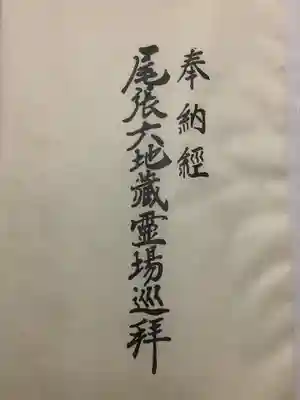 奉納經
尾張大地藏靈場巡拜